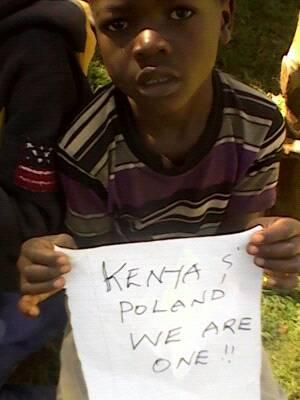 KENYA &
POLAND,
WE ARE
ONE !!